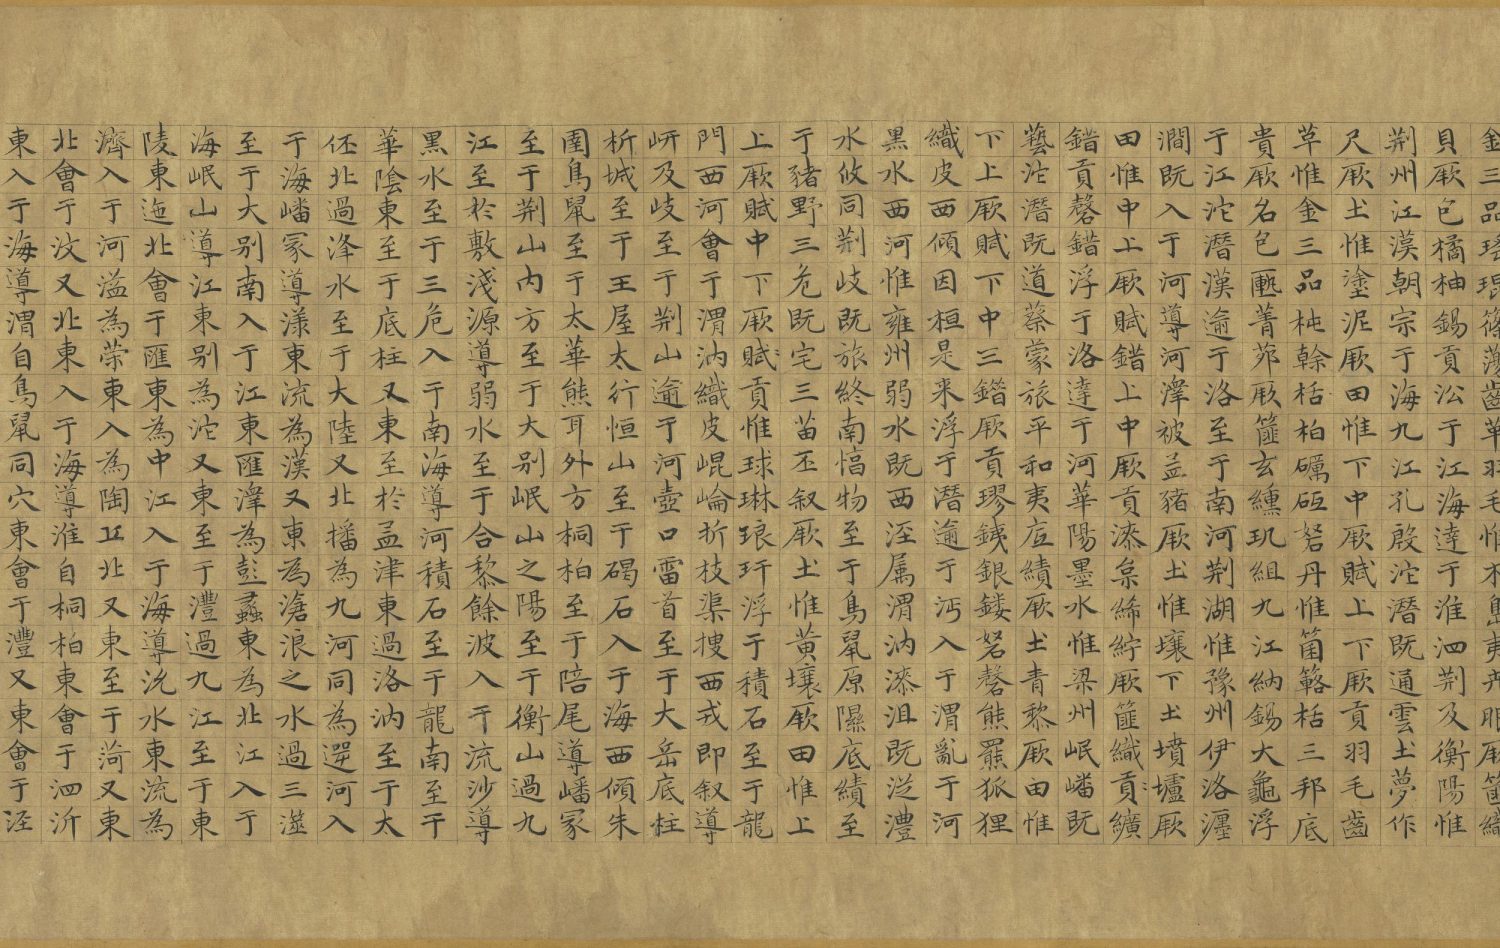 金三品瑤琨篠蕩齒革羽毛惟木島夷卉服厥篚織
貝厥包橘柚錫貢沿于江海達于淮泗荆及衡陽惟
荆州江漢朝宗于海九江孔殷沱潛既通雲土夢作
尺厥土惟塗泥厥田惟下中厥賦上下厥貢羽毛齒
草惟金三品杶榦栝柏礪砥砮丹惟箘簵楛三邦底
貴厥名包匭菁茆厥篚玄纁璣組九江納錫大龜浮
于江沱潛漢逾于洛至于南河荆湖惟豫州伊洛瀍
澗既入于河導河澤被孟豬厥土惟壤下土墳壚厥
田惟中上厥賦錯上中厥貢漆枲絺紵厥篚織貢纊
錯貢磬錯浮于洛達于河華陽墨水惟梁州岷嶓既
藝沱潛既道蔡蒙旅平和夷底績厥土青黎厥田惟
下上厥賦下中三錯厥貢璆銕銀鏤砮磬熊羆狐狸
織皮西傾因桓是来浮于潛逾于沔入于渭亂于河
黑水西河惟雍州弱水既西涇属渭汭漆沮既從灃
水攸同荆岐既旅終南惇物至于鳥鼠原隰底績至
于豬野三危既宅三苗丕叙厥土惟黄壤厥田惟上
上厥賦中下厥賦貢惟球琳琅玕浮于積石至于龍
門西河會于渭汭織皮崐崘析枝渠搜西戎即叙導
岍及岐至于荆山逾于河壺口雷首至于大岳底柱
析城至于王屋太行恒山至于碣石入于海西傾朱
圉鳥鼠至于太華熊耳外方桐柏至于陪尾導嶓冢
至于荆山内方至于大别岷山之陽至于衡山過九
江至於敷淺源導弱水至于合黎餘波入于流沙導
黑水至于三危入于南海導河積石至于龍南至于
華陰東至于底柱又東至於孟津東過洛汭至于大
伾北過洚水至于大陸又北播為九河同為逆河入
于海嶓冢導漾東流為漢又東為滄浪之水過三澨
至于大别南入于江東匯澤為彭蠡東為北江入于
海岷山導江東别為沱又東至于澧過九江至于東
陵東迆北會于匯東為中江入于海導沇水東流為
濟入于河溢為荣東入為陶丘北又東至于菏又東
北會于汶又北東入于海導淮自桐柏東會于泗沂
東入于海導渭自鳥鼠同穴東會于灃又東會于涇